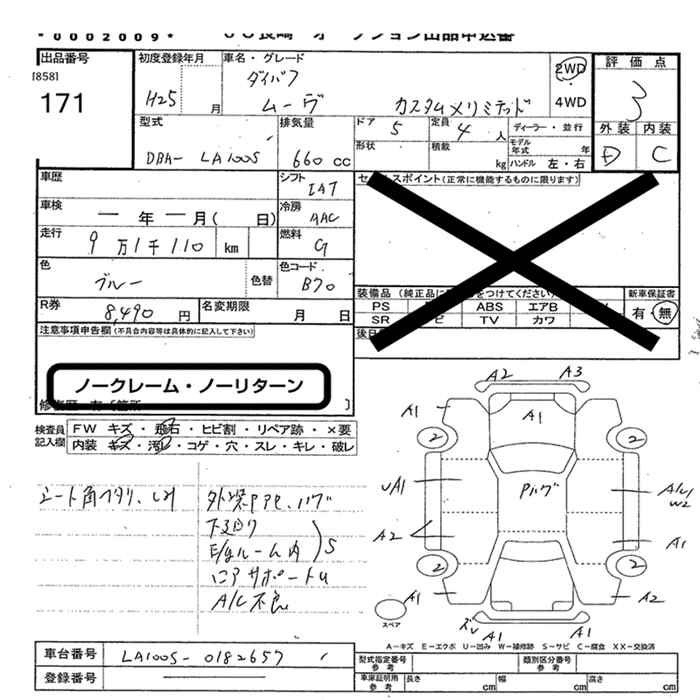 *0002009*
出品番号
[858]
171
初度登録年月
H25 月
車名・グレード
ダイハツ
ムーヴ カスタムXリミテッド
2WD
4WD
評価点
3
外装 内装
D C
型式
DBA- LA100S
排気量
660 cc
ドア 5
定員 4 人
形状
積載 kg
ディーラー・並行
モデル年式 年
ハンドル 左・右
車歴
シフト
IAT
セールスポイント (正常に機能するものに限ります)
車検
ー 年 ー 月( 日)
冷房
AAC
走行
9万1千110 km
燃料
G
色
ブルー
色替
色コード
B70
R券
8,490 円
名変期限
月 日
装備品
PS ABS エアB
SR TV カワ
新車保証書
有・無
後日
注意事項申告欄 (不具合内容等は具体的に記入して下さい)
ノークレーム・ノーリターン
検査員記入欄
FW キズ・飛石・ヒビ割・リペア跡・×要
内装 キズ・汚れ・コゲ・穴・スレ・キレ・破レ
外装
下廻り
E/gルーム内 S
コアサポートU
A/C不良
A2 A3
A1 A1
2 2
UA1
A2
A1
2 2
A1 A2
A1 A1
スペア
A-キズ E-エクボ U-凹み W-補修跡 S-サビ C-腐食 XX-交換済
車台番号
LA100S-0182657
登録番号
型式指定番号 参考
類別区分番号 参考
車庫証明用 参考
長さ cm
幅 cm
高さ cm